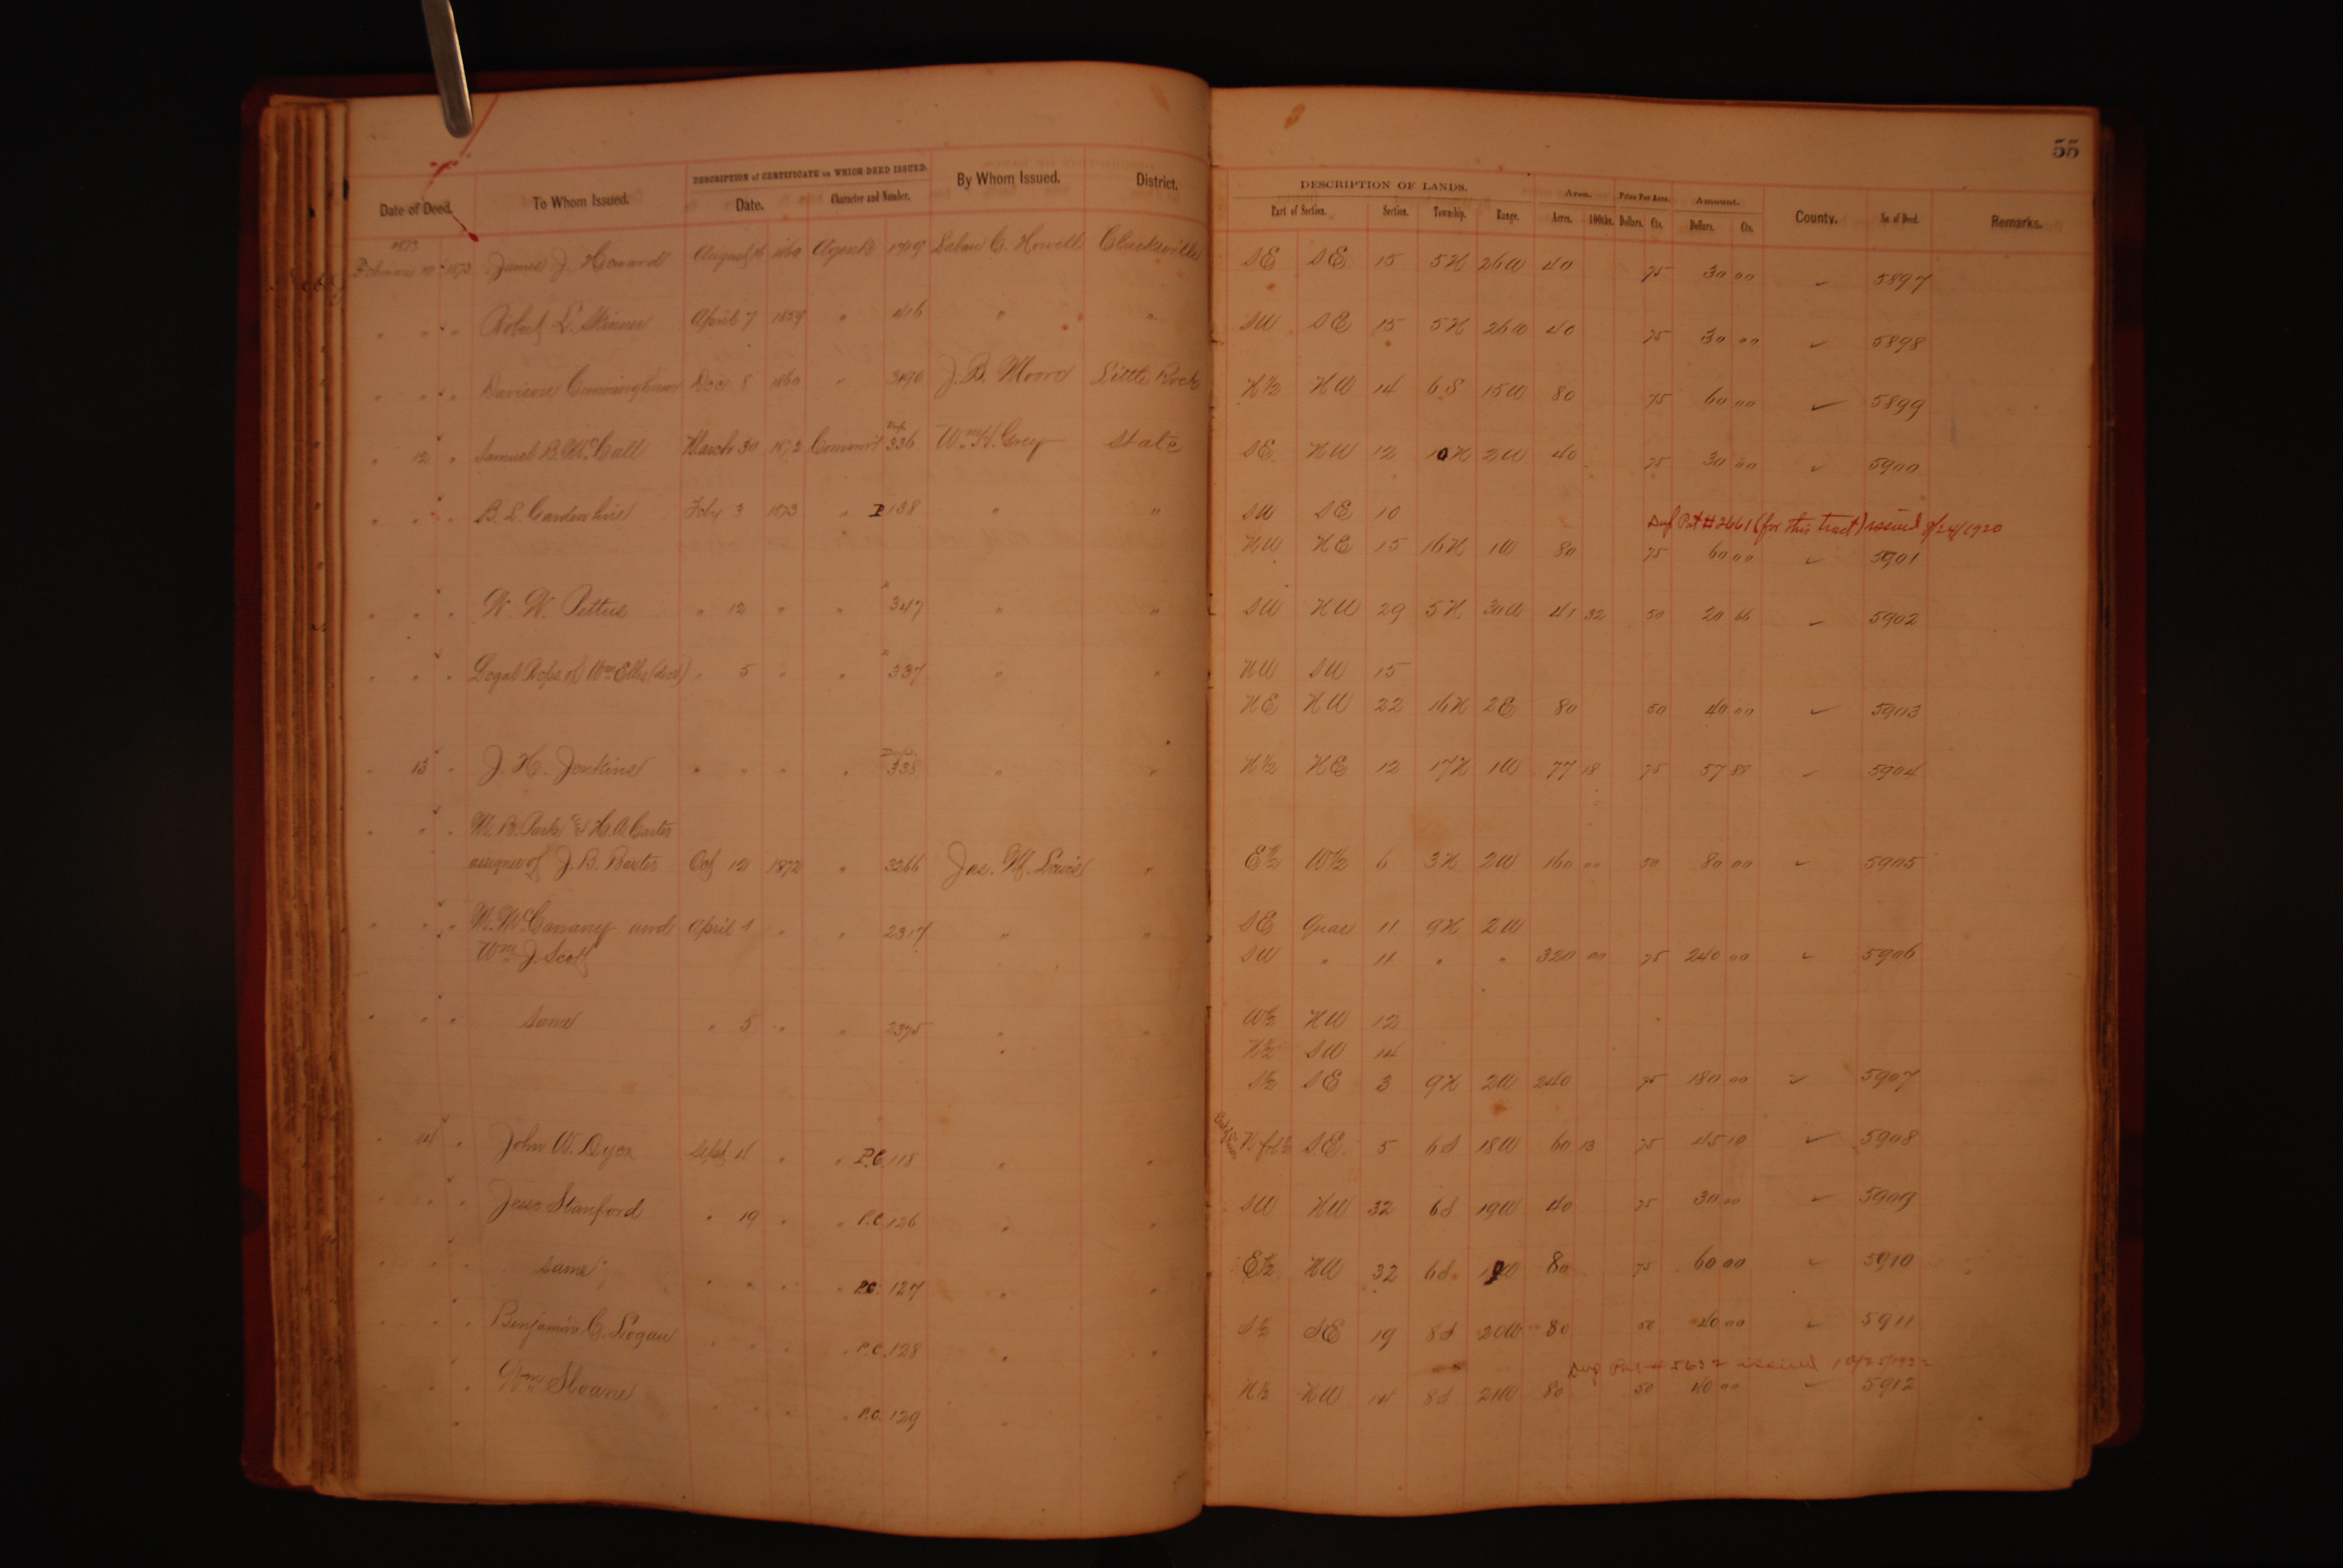 55
DESCRIPTION of CERTIFICATE on WHICH DEED ISSUED.
Date of Deed. To Whom Issued. Date. Character and Number. By Whom Issued. District.
DESCRIPTION OF LANDS. Area. Price Per Acre. Amount.
Part of Section. Section. Township. Range. Acres. 100ths. Dollars. Cts. Dollars. Cts. County. No. of Deed. Remarks.
1873
February 10 1873 James J. Howard August 16 1860 Agents C. Howell Clarksville SE SE 15 5N 26W 40 75 30 00 ✓ 5897
" " " Robert L. Skinner April 7 1859 " 416 " " SW SE 15 5N 26W 40 75 30 00 ✓ 5898
" " " Davison Cunningham Dec 8 1860 " 3190 J. B. Moore Little Rock N½ NW 14 6S 15W 80 75 60 00 ✓ 5899
" 12 " Samuel B. McCall March 30 1872 336 Wm H. Grey State SE NW 12 10N 2W 40 75 30 00 ✓ 5900
" " " B. L. Gardenhire Feby 3 1873 " P 138 " " SW SE 10
Dup Pat # 2661 (for this tract) issued 9/24/1920
NW NE 15 16N 1W 80 75 60 00 ✓ 5901
" " " W. W. Pettus " 12 " " 347 " " SW NW 29 5N 30W 41 32 50 20 66 5902
" " " Legal Reps. of Wm Ellis (decd) " 5 " " 337 " " NW SW 15
NE NW 22 16N 2E 80 50 40 00 ✓ 5903
" 13 " J. H. Jenkins " " " " 338 " " N½ NE 12 17N 1W 77 18 75 57 88 ✓ 5904
" " " M. B. Park & H. A. Carter
assignee of J. B. Baxter Oct 12 1872 " 3266 Jas. M. Lewis " E½ W½ 6 3N 2W 160 00 50 80 00 ✓ 5905
" " " and April 1 " " 2317 " " SE Quar 11 9N 2W
Wm J. Scott SW " 11 " " 320 00 75 240 00 ✓ 5906
" " " Same " 5 " " 2375 " " W½ NW 12
N½ SW 14
S½ SE 3 9N 2W 240 75 180 00 ✓ 5907
" 14 " John W. Dyer Sept 11 " " P.C. 118 " " SE 5 6S 18W 60 13 75 45 10 ✓ 5908
" " " Jesse Stanford " 19 " " P.C. 126 " " SW NW 32 6S 19W 40 75 30 00 ✓ 5909
" " " Same " " " " P.C. 127 " " E½ NW 32 6S 19W 80 75 60 00 ✓ 5910
" " " Benjamin C. Logan " " " " P.C. 128 " " S½ SE 19 8S 20W 80 50 40 00 ✓ 5911
Dup Pat # 5632 issued
" " " Wm Sloane " " " " P.C. 129 " " N½ NW 14 8S 21W 80 50 40 00 ✓ 5912